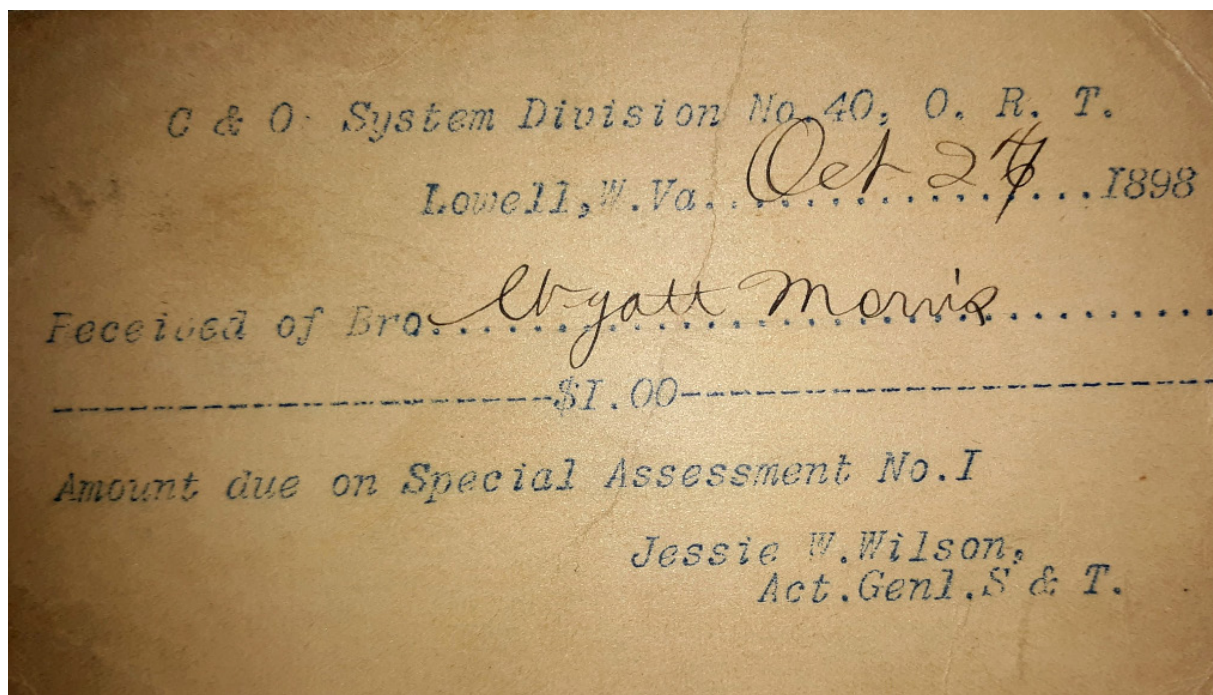 C & O System Division No.40, O. R. T.
Lowell, W.Va. Oct 1898
Received of Bro. Wyatt Morris
$I.00
Amount due on Special Assessment No.I
Jessie W.Wilson,
Act.Genl.S & T.